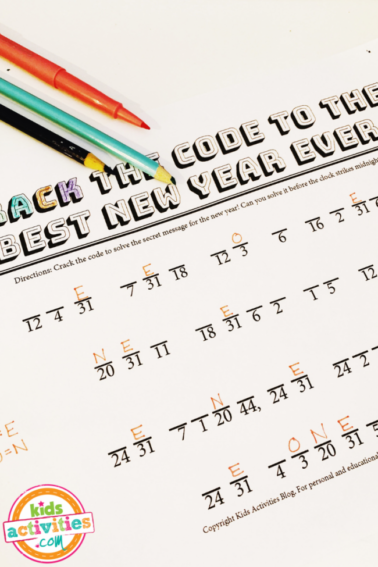 CRACK THE CODE TO THE
BEST NEW YEAR EVER
Directions: Crack the code to solve the secret message for the new year! Can you solve it before the clock strikes midnight
E E O E
12 4 31 7 31 18 12 3 6 16 2 31
N E E
20 31 11 18 31 6 2 1 5 12
E N E
24 31 7 1 20 44, 24 31 24 2
E O N E
24 31 4 3 20 31
=E
=N
Copyright Kids Activities Blog. For personal and educational
kids
activities
.com